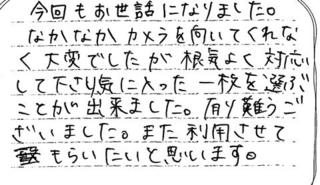 今回もお世話になりました。
なかなかカメラを向いてくれな
く大変でしたが根気よく対応
して下さり気に入った一枚を選ぶ
ことが出来ました。有り難うご
ざいました。また利用させて
もらいたいと思います。